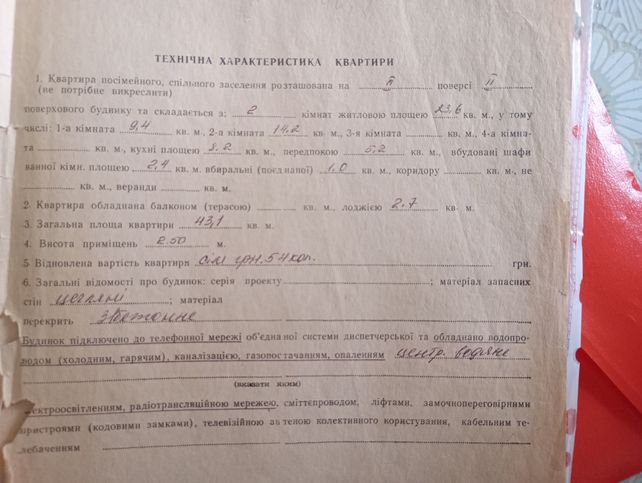 ТЕХНІЧНА ХАРАКТЕРИСТИКА КВАРТИРИ
1. Квартира посімейного, спільного заселення розташована на II поверсі II
(не потрібне викреслити)
поверхового будинку та складається з: 2 кімнат житловою площею 23,6 кв. м., у тому
числі: 1-а кімната 9,4 кв. м., 2-а кімната 14,2 кв. м., 3-я кімната кв. м., 4-а кімна-
та кв. м., кухні площею 8,2 кв. м., передпокою 5,2 кв. м., вбудовані шафи
ванної кімн. площею 2,4 кв. м. вбиральні (поєднаної) 1,0 кв. м., коридору кв. м-, не
кв. м., веранди кв. м.
2. Квартира обладнана балконом (терасою) кв. м., лоджією 2,7 кв. м.
3. Загальна площа квартири 43,1 кв. м.
4. Висота приміщень 2.50 м.
5 Відновлена вартість квартири сім грн. 54 коп. грн.
6. Загальні відомості про будинок: серія проекту ; матеріал запасних
стін цегляні ; матеріал
перекрить
Будинок підключено до телефонної мережі об'єднаної системи диспетчерської та обладнано водопро-
водом (холодним, гарячим), каналізацією, газопостачанням, опаленням центр. водяне
(вказати яким)
електроосвітленням, радіотрансляційною мережею, сміттєпроводом, ліфтами, замочнопереговірними
пристроями (кодовими замками), телевізійною антеною колективного користування, кабельним те-
лебаченням